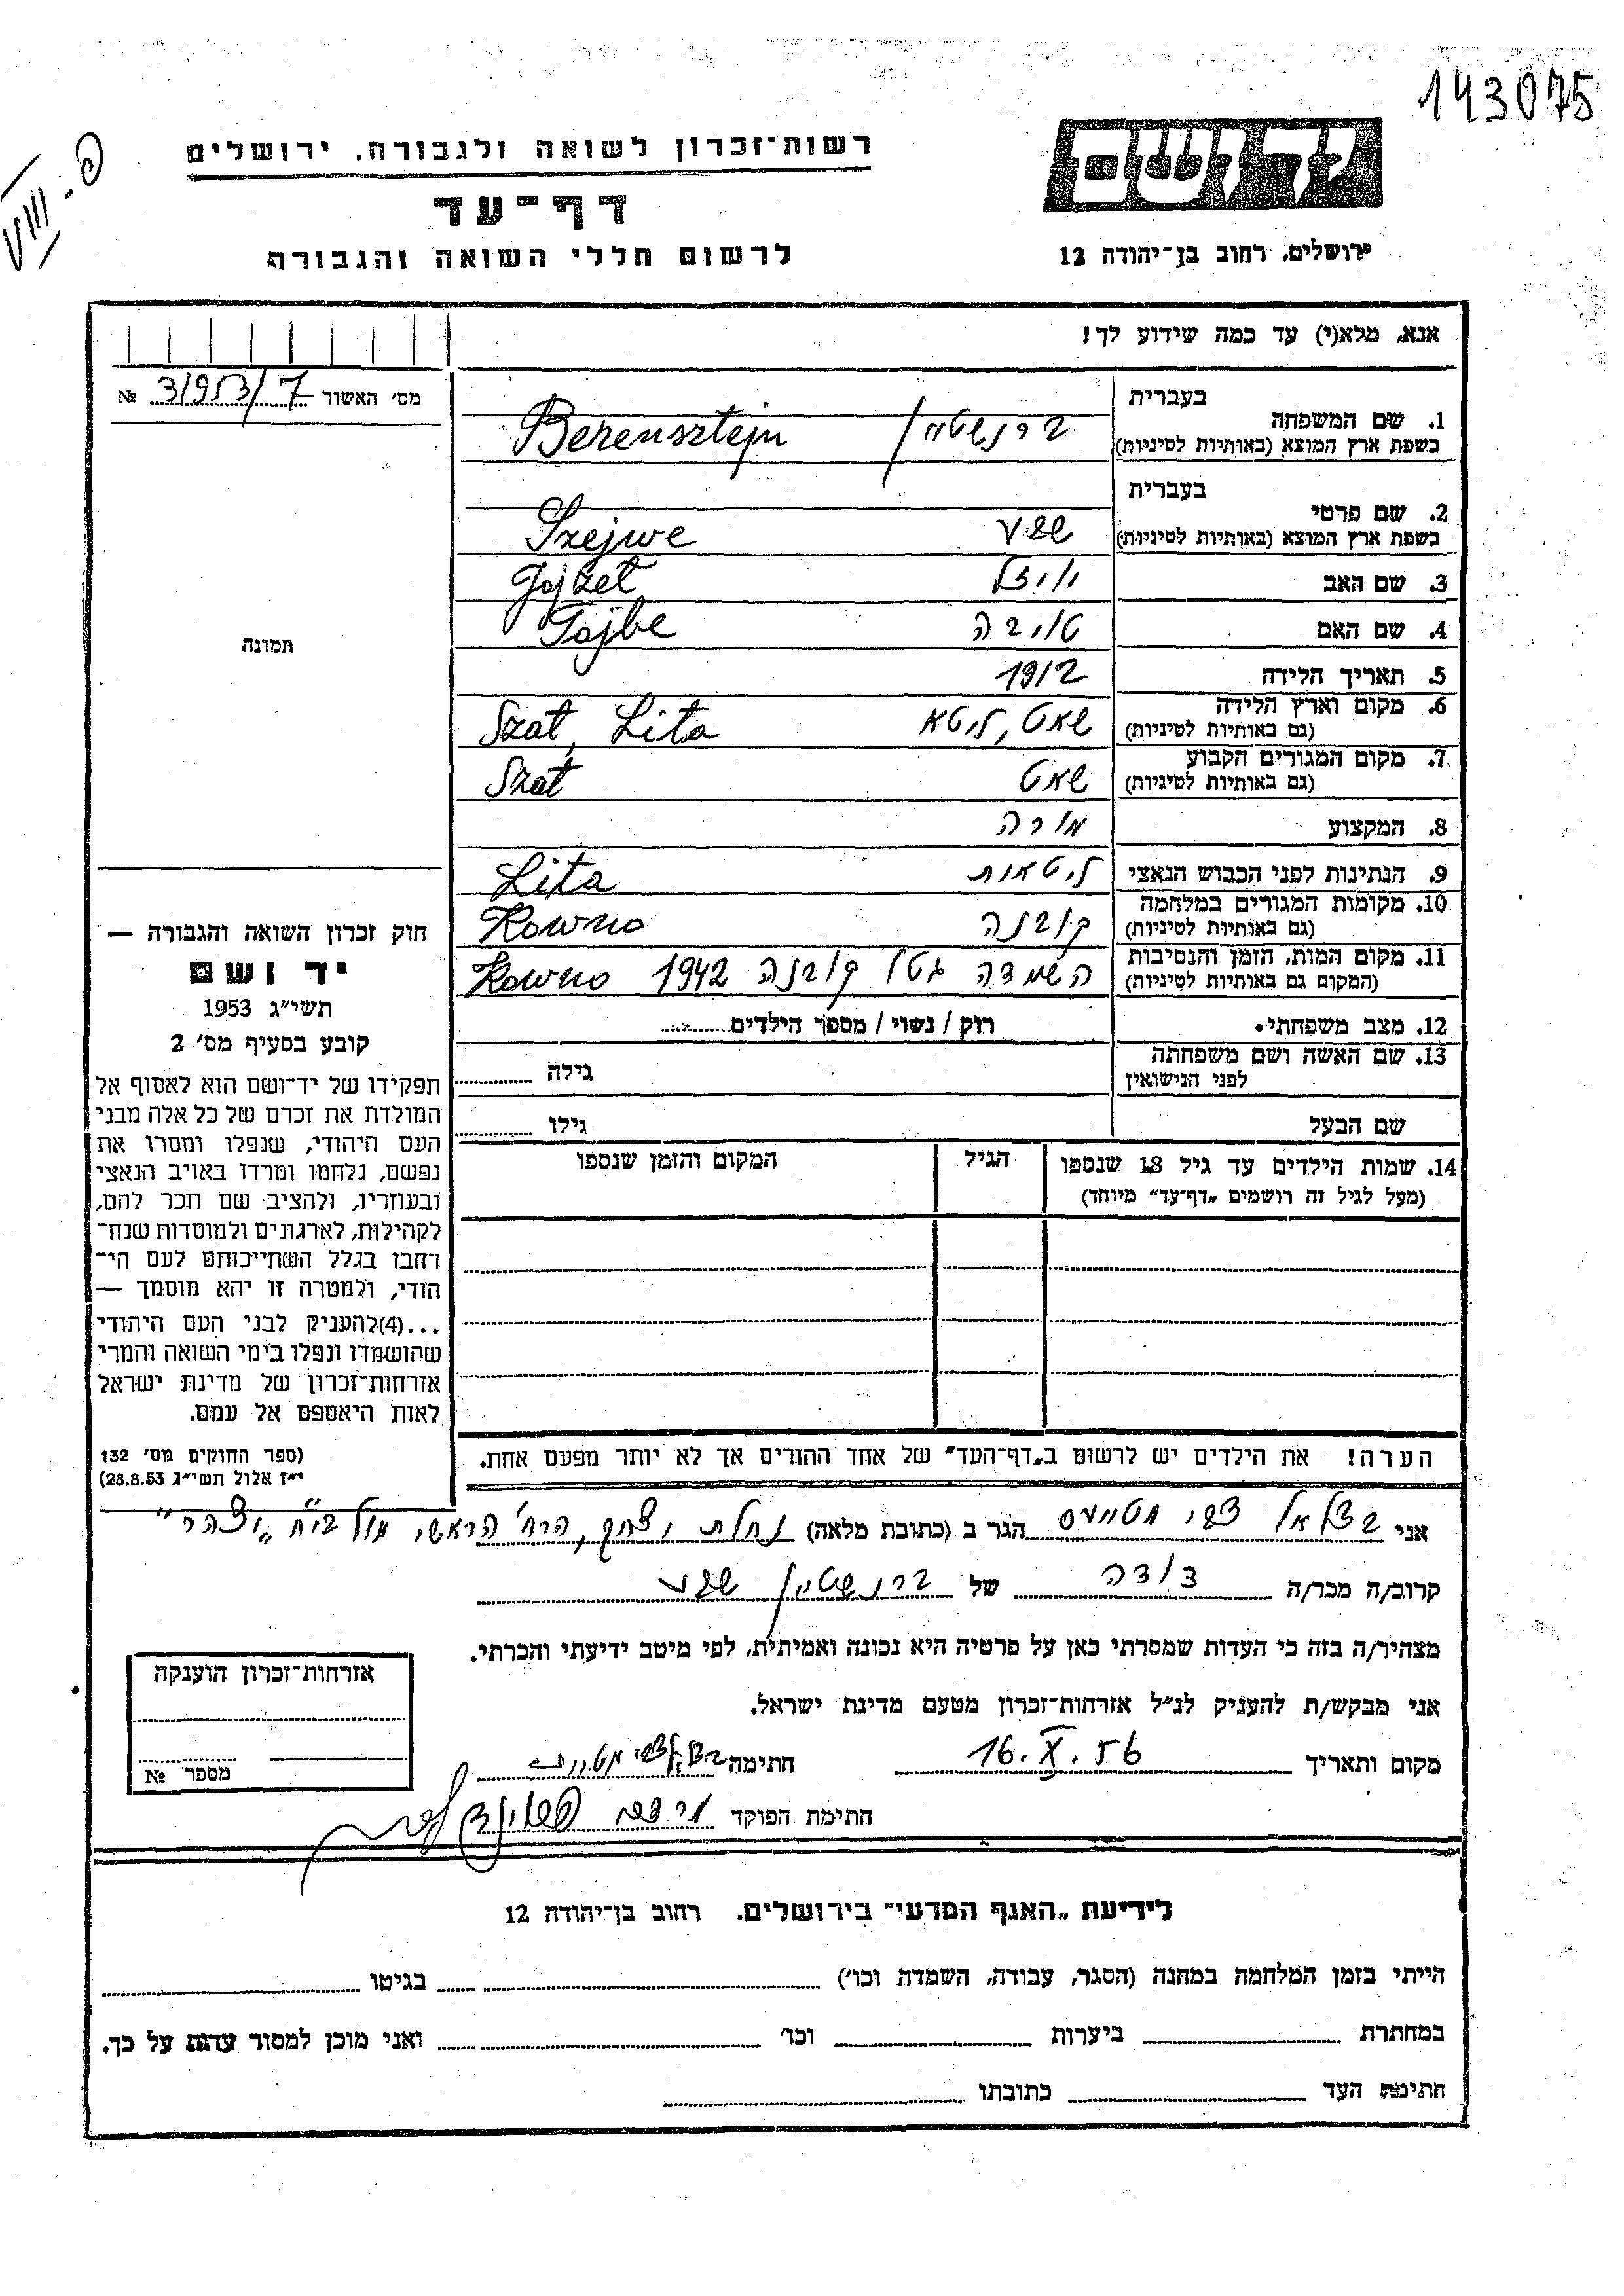 143075
פ. VIII
יד ושם
רשות־זכרון לשואה ולגבורה, ירושלים
דף־עד
ירושלים, רחוב בן־יהודה 12
לרשום חללי השואה והגבורה
אנא, מלא(י) עד כמה שידוע לך!
מס׳ האשור 3/953/7 №
תמונה
בעברית
1. שם המשפחה
בשפת ארץ המוצא (באותיות לטיניות)
ברנשטיין / Berensztejn
בעברית
2. שם פרטי
בשפת ארץ המוצא (באותיות לטיניות)
Szejwe
3. שם האב
4. שם האם טויבה Tojbe
5. תאריך הלידה 1912
6. מקום וארץ הלידה
(גם באותיות לטיניות)
שאט, ליטא Szat, Lita
7. מקום המגורים הקבוע
(גם באותיות לטיניות)
שאט Szat
8. המקצוע מורה
9. הנתינות לפני הכבוש הנאצי ליטאות Lita
10. מקומות המגורים במלחמה
(גם באותיות לטיניות)
קובנה Kowno
11. מקום המות, הזמן והנסיבות
(המקום גם באותיות לטיניות)
השמדה גטו קובנה 1942 Kowno
12. מצב משפחתי. רוק / נשוי / מספר הילדים
13. שם האשה ושם משפחתה
לפני הנישואין
גילה
שם הבעל גילו
14. שמות הילדים עד גיל 18 שנספו
(מעל לגיל זה רושמים „דף־עד״ מיוחד)
הגיל
המקום והזמן שנספו
חוק זכרון השואה והגבורה —
יד ושם
תשי״ג 1953
קובע בסעיף מס׳ 2
תפקידו של יד־ושם הוא לאסוף אל
המולדת את זכרם של כל אלה מבני
העם היהודי, שנפלו ומסרו את
נפשם, נלחמו ומרדו באויב הנאצי
ובעוזריו, ולהציב שם וזכר להם,
לקהילות, לארגונים ולמוסדות שנח־
רחבו בגלל השתייכותם לעם הי־
הודי, ולמטרה זו יהא מוסמך —
...(4)להעניק לבני העם היהודי
שהושמדו ונפלו בימי השואה והמרי
אזרחות־זכרון של מדינת ישראל
לאות היאספם אל עמם.
(ספר החוקים מס׳ 132
י״ז אלול תשי״ג 28.8.53)
הערה! את הילדים יש לרשום ב„דף־העד״ של אחד ההורים אך לא יותר מפעם אחת.
אני בצלאל צבי הגר ב (כתובת מלאה) נחלת יצחק, הרח׳ הראשי מול ביח״ר „יצהר״
קרוב/ה מכר/ה דודה של ברנשטיין
מצהיר/ה בזה כי העדות שמסרתי כאן על פרטיה היא נכונה ואמיתית, לפי מיטב ידיעתי והכרתי.
אני מבקש/ת להעניק לנ״ל אזרחות־זכרון מטעם מדינת ישראל.
מקום ותאריך 16.X.56 חתימה
חתימת הפוקד
אזרחות־זכרון הוענקה
מספר №
לידיעת „האגף המדעי״ בירושלים. רחוב בן־יהודה 12
הייתי בזמן המלחמה במחנה (הסגר, עבודה, השמדה וכו׳) בגיטו
במחתרת ביערות וכו׳ ואני מוכן למסור עדות על כך.
חתימת העד כתובתו